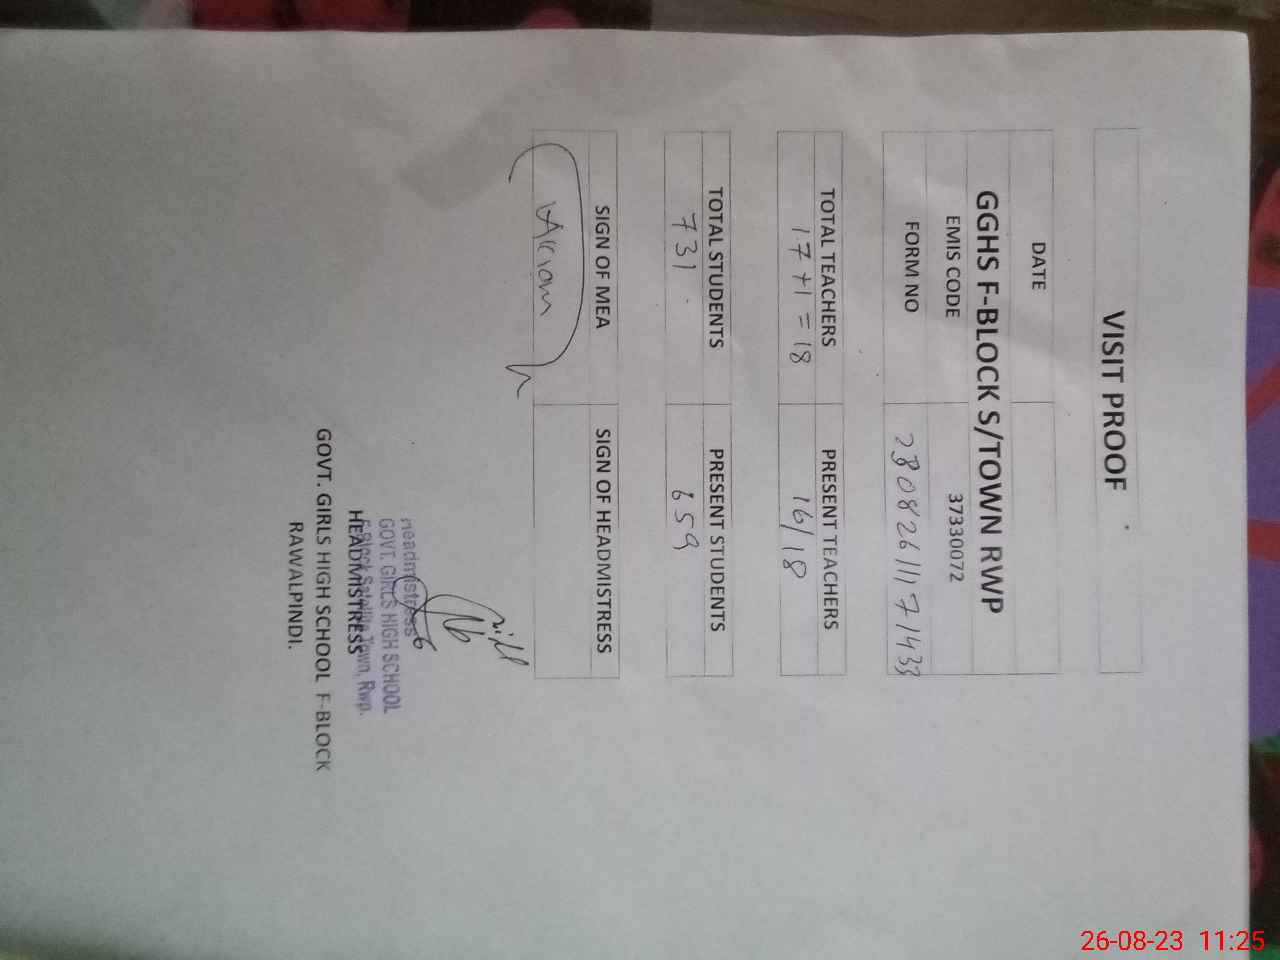 VISIT PROOF
DATE
GGHS F-BLOCK S/TOWN RWP
EMIS CODE 37330072
FORM NO 23082611171433
TOTAL TEACHERS PRESENT TEACHERS
17+1=18 16/18
TOTAL STUDENTS PRESENT STUDENTS
731 659
SIGN OF MEA SIGN OF HEADMISTRESS
Headmistress
GOVT. GIRLS HIGH SCHOOL
F-Block Satellite Town, Rwp.
HEADMISTRESS
GOVT. GIRLS HIGH SCHOOL F-BLOCK
RAWALPINDI.
26-08-23 11:25